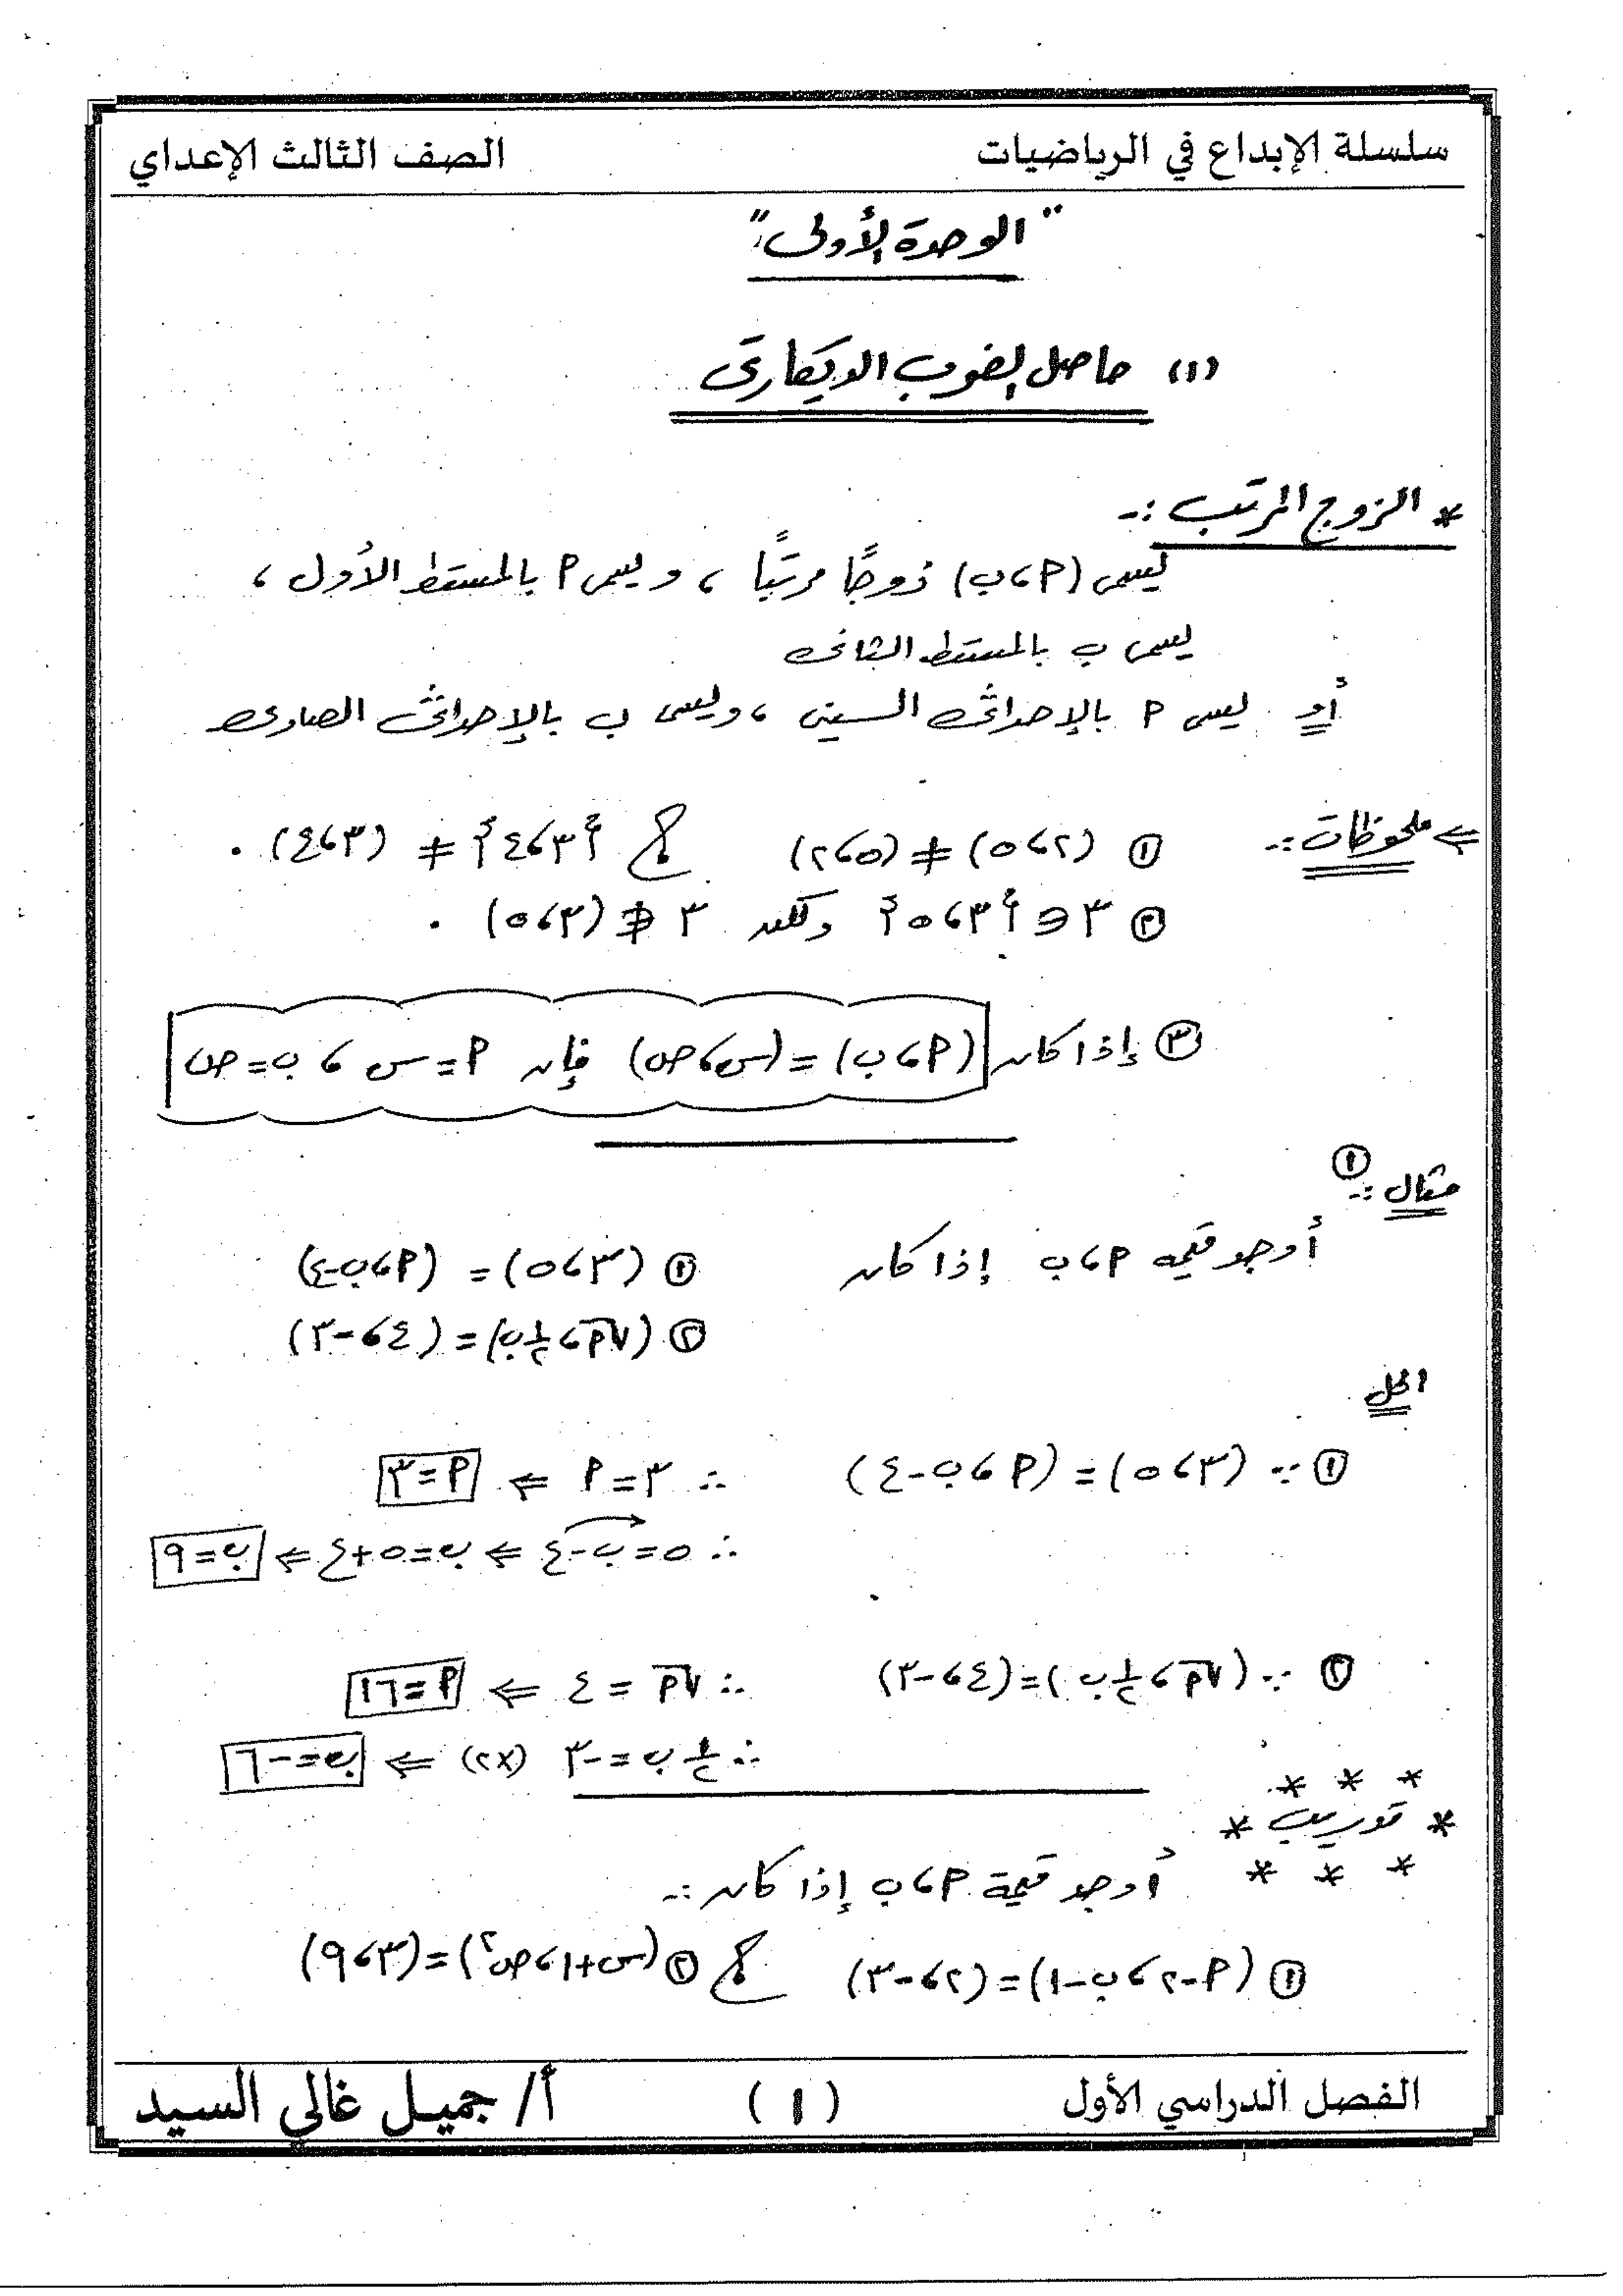 سلسلة الإبداع في الرياضيات الصف الثالث الإعداي
"الوحدة الأولى"
(١) حاصل الضرب الديكارتى
* الزوج المرتب :-
يسمى (أ ، ب) زوجًا مرتبًا ، ويسمى أ بالمسقط الأول ،
يسمى ب بالمسقط الثانى
أو يسمى أ بالإحداثى السينى ، ويسمى ب بالإحداثى الصادى
⇐ ملحوظات :-
① (٢ ، ٥) ≠ (٥ ، ٢) ، {٣ ، ٤} ≠ (٣ ، ٤) .
② ٣ ∈ {٣ ، ٥} ولكن ٣ ∉ (٣ ، ٥) .
③ إذا كان (أ ، ب) = (س ، ص) فإن أ = س ، ب = ص
مثال ① :-
أوجد قيمة أ ، ب إذا كان ① (٣ ، ٥) = (أ ، ب - ٤)
② (√أ ، ½ ب) = (٤ ، -٣)
الحل
① ∵ (٣ ، ٥) = (أ ، ب - ٤) ∴ ٣ = أ ⇐ أ = ٣
∴ ٥ = ب - ٤ ⇐ ب = ٥ + ٤ ⇐ ب = ٩
② ∵ (√أ ، ½ ب) = (٤ ، -٣) ∴ √أ = ٤ ⇐ أ = ١٦
∴ ½ ب = -٣ (×٢) ⇐ ب = -٦
* * *
* تدريب *
* * *
أوجد قيمة أ ، ب إذا كان :-
① (أ - ٢ ، ب - ١) = (٢ ، -٣) ، ② (س + ١ ، ص²) = (٣ ، ٩)
الفصل الدراسي الأول (١) أ/ جميل غالي السيد